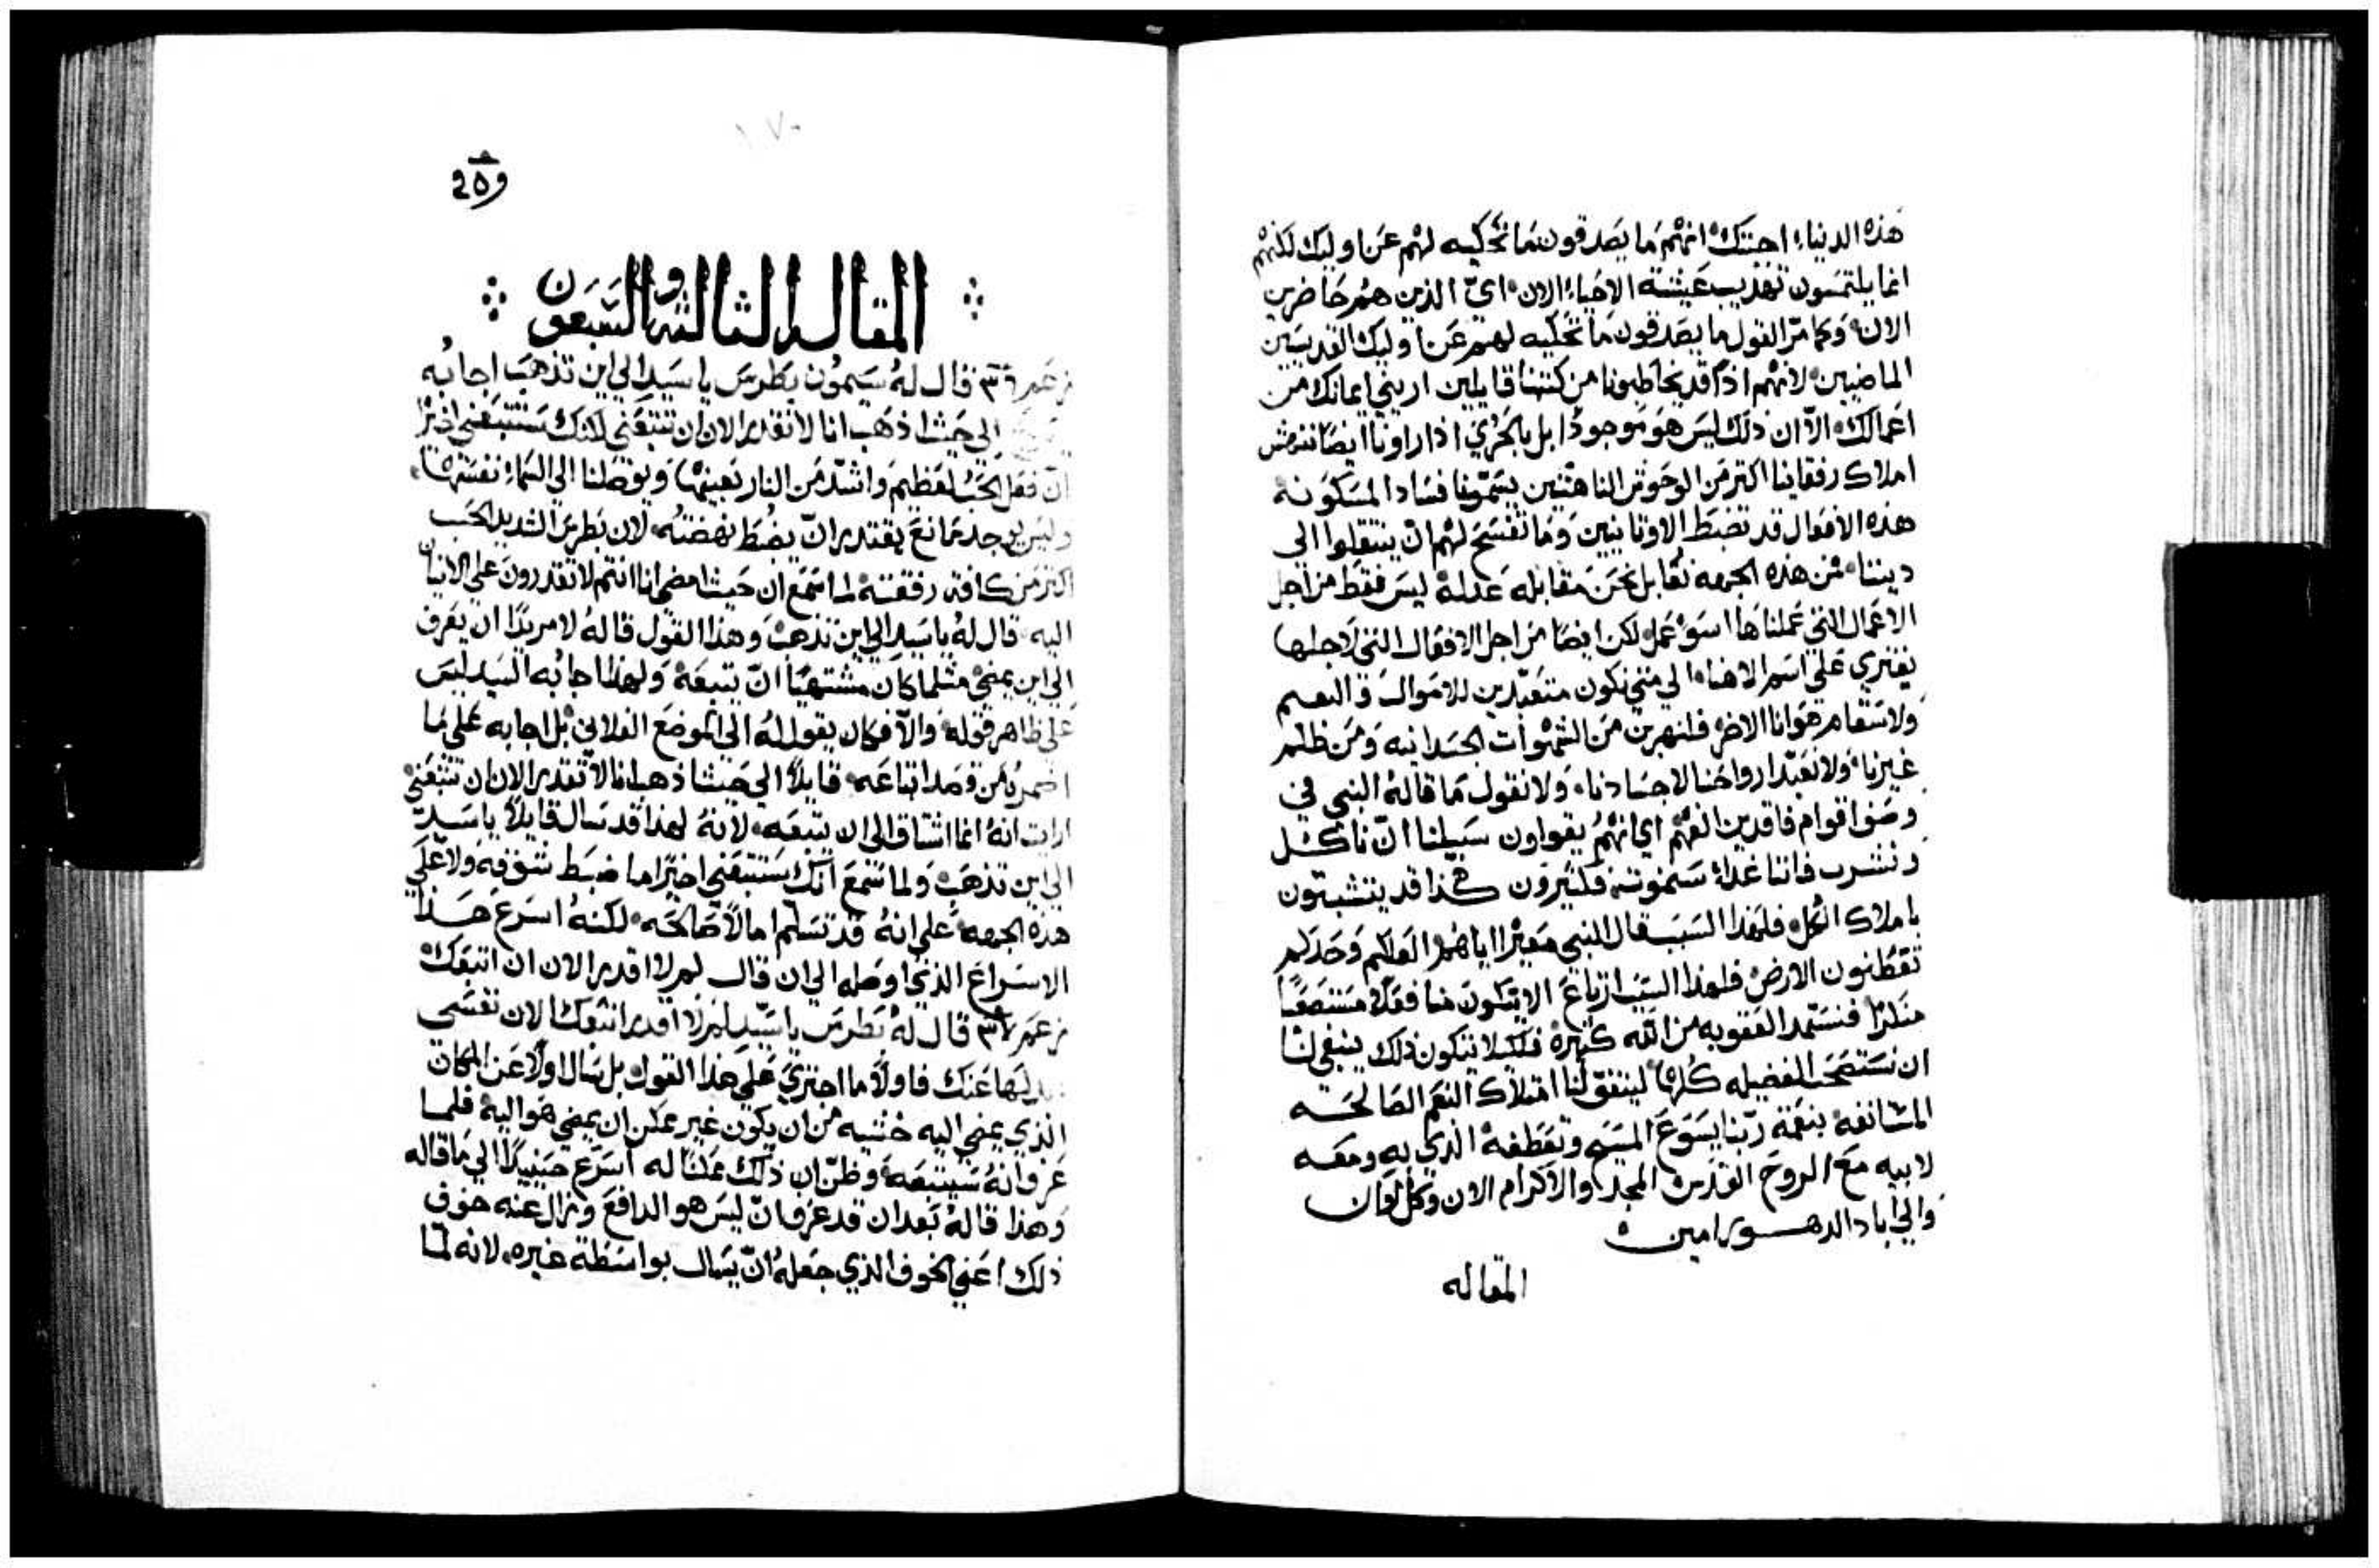 هذه الدنيا، اجبتك انهم ما يصدقون بما نحكيه لهم عن اوليك لكنهم
انما يلتمسون تهذيب عيشة الاحياء الان، اي الذين هم حاضرين
الان، وكما مر القول ما يصدقون ما نحكيه لهم عن اوليك القديسين
الماضيين، لانهم اذًا قد يخاطبونا من كتبنا قايلين اريني ايمانك من
اعمالك، الا ان ذلك ليس هو موجودًا بل بالحري اذا راونا ايضًا ننهش
املاك رفقاينا اكتر من الوحوش الناهشين يسمونا فساد المسكونه
هذه الافعال قد تضبط الاوتانيين وما تفسح لهم ان ينتقلوا الي
ديننا، فمن هذه الجهه نقابل نحن مقابله عدله ليس فقط من اجل
الاعمال التي عملناها اسوء عمل لكن ايضًا من اجل الافعال التي لاجلها
يفتري علي اسم الاهنا، الي متي نكون متعبدين للاموال والنعيم
ولاسقام هوانا الاخر فلنهربن من الشهوات الجسدانيه ومن ظلم
غيرنا، ولا نعبد ارواحنا لاجسادنا، ولا نقول ما قاله النبي في
وصف اقوام فاقدين الفهم اي انهم يقولون سبيلنا ان ناكل
ونشرب فاننا غداً سنموت، فكثيرون هكذا قد يتشبتون
باملاك الكل، فلهذا السبب قال النبي معيرًا اياهم العلكم وحدكم
تقطنون الارض، فلهذا السبب ارتاع الا يتكون منا فعلا مستصعبًا
منكرًا فنستمد العقوبه من الله كثيرة فلكيلا يتكون ذلك ينبغي لنا
ان نستصحب الفضيله كلها، ليتفق لنا امتلاك النعم الصالحه
المستانفه بنعمة ربنا يسوع المسيح وتعطفه الذي به ومعه
لابيه مع الروح القدس المجد والاكرام الان وكل اوان
والي اباد الدهور امين
المقاله
١٧٠
المقاله الثالثه والسبعون
ع٣٦ قال له سيمون بطرس يا سيد الي اين تذهب اجابه
الي حيث اذهب انا لا تقدر الان ان تتبعني لكنك ستتبعني اخيرًا
ان فعل الحب لعظيم واشد من النار بعينها، ويوصلنا الي السماء نفسها،
وليس يوجد مانع يقتدر ان يضبط نهضته، لان بطرس الشديد الحب
اكتر من كافة رفقته لما سمع ان حيث امضي انا انتم لا تقدرون علي الاتيان
اليه، قال له يا سيد الي اين تذهب، وهذا القول قاله لا مريدًا ان يعرف
الي اين يمضي مثلما كان مشتهيًا ان يتبعه، ولهذا اجابه السيد ليس
علي ظاهر قوله، والا فكان يقول له الي الموضع الفلاني، بل اجابه علي ما
اضمره من قصد اتباعه، قايلًا الي حيث اذهب انا لا تقدر الان ان تتبعني
ارايت انه انما اشتاق الي ان يتبعه، لانه لهذا قد سال قايلًا يا سيد
الي اين تذهب، ولما سمع انك ستتبعني اخيرًا ما ضبط شوقه ولا علي
هذه الجهه، علي انه قد تسلم امالًا صالحه، لكنه اسرع هذا
الاسراع الذي اوصله الي ان قال لم لا اقدر الان ان اتبعك
ع٣٧ قال له بطرس يا سيد لم لا اقدر اتبعك الان نفسي
ابدلها عنك فاولًا ما اجترئ علي هذا القول بل سال اولًا عن المكان
الذي يمضي اليه خشيه من ان يكون غير ممكن ان يمضي هو اليه، فلما
عرف انه سيتبعه، وظن ان ذلك ممكنًا له اسرع حينيذًا الي ما قاله
وهذا قاله بعد ان قد عرف ان ليس هو الدافع وزال عنه خوف
ذلك اعني الخوف الذي جعله ان يسال بواسطة غيره، لانه لما